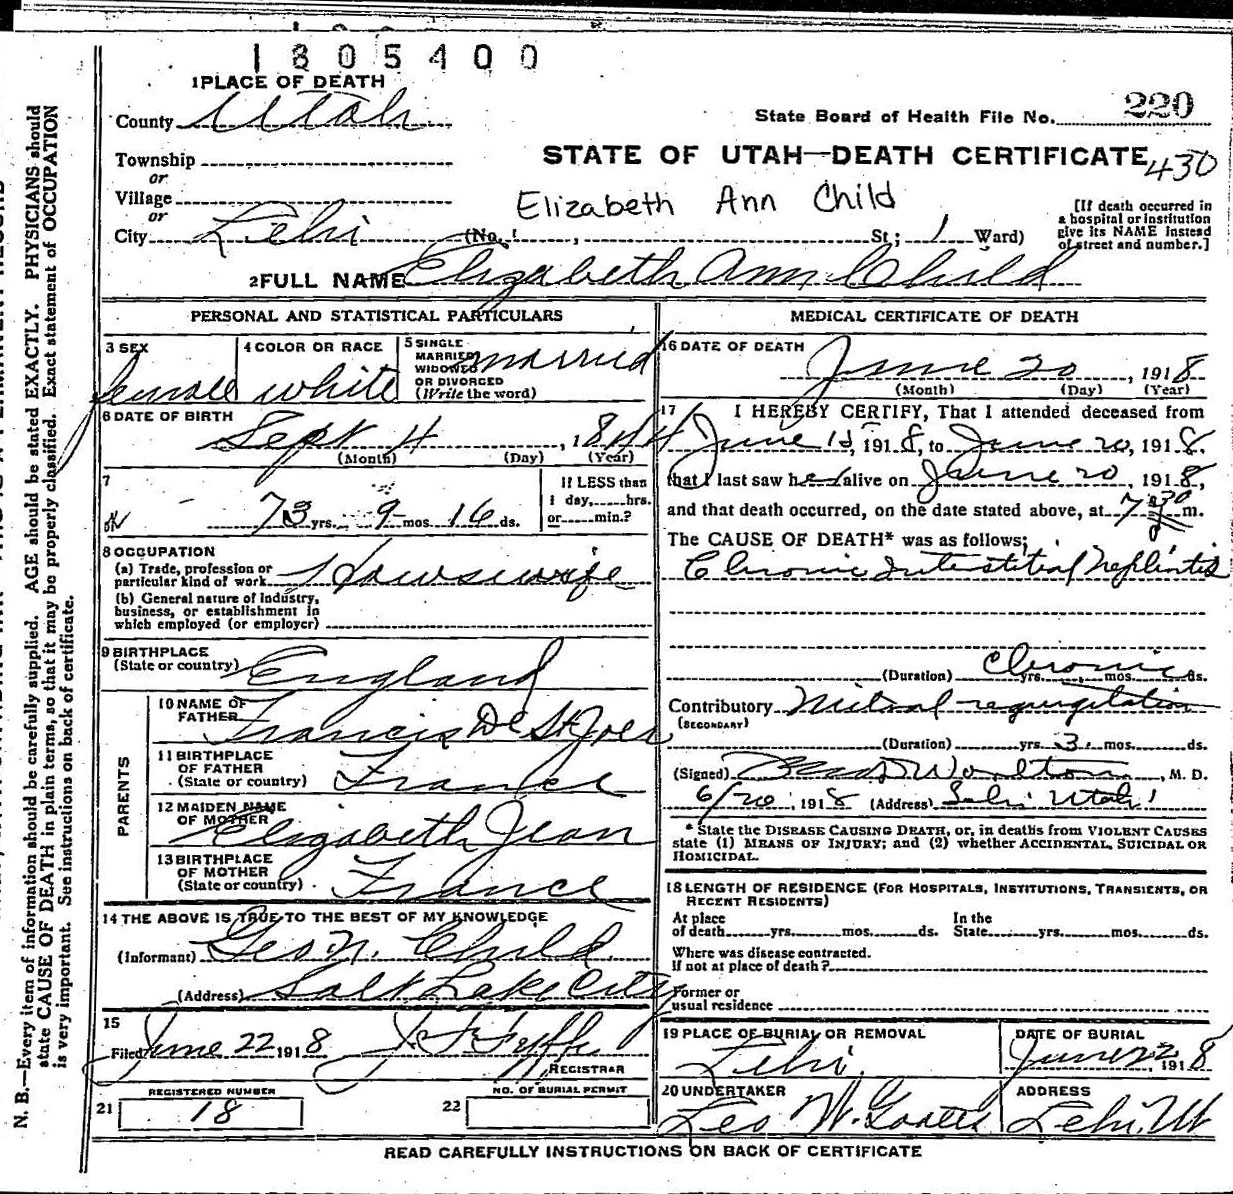 1805400
1 PLACE OF DEATH
County Utah
State Board of Health File No. 220
Township
or
STATE OF UTAH—DEATH CERTIFICATE 430
Village
or
Elizabeth Ann Child
City Lehi (No. , St; 1 Ward)
[If death occurred in
a hospital or institution
give its NAME instead
of street and number.]
2 FULL NAME Elizabeth Ann Child
PERSONAL AND STATISTICAL PARTICULARS
3 SEX
female
4 COLOR OR RACE
white
5 SINGLE
MARRIED
WIDOWED
OR DIVORCED
(Write the word)
married
6 DATE OF BIRTH
Sept 4, 1844
(Month) (Day) (Year)
7
73 yrs. 9 mos. 16 ds.
If LESS than
1 day, hrs.
or min.?
8 OCCUPATION
(a) Trade, profession or
particular kind of work Housewife
(b) General nature of industry,
business, or establishment in
which employed (or employer)
9 BIRTHPLACE
(State or country) England
PARENTS
10 NAME OF
FATHER Francis De St Joer
11 BIRTHPLACE
OF FATHER
(State or country) France
12 MAIDEN NAME
OF MOTHER Elizabeth Jean
13 BIRTHPLACE
OF MOTHER
(State or country) France
14 THE ABOVE IS TRUE TO THE BEST OF MY KNOWLEDGE
(Informant) Geo N. Child
(Address) Salt Lake City
15
Filed June 22 1918
REGISTRAR
REGISTERED NUMBER
21 18
NO. OF BURIAL PERMIT
22
MEDICAL CERTIFICATE OF DEATH
16 DATE OF DEATH
June 20, 1918
(Month) (Day) (Year)
17 I HEREBY CERTIFY, That I attended deceased from
June , 1918, to June 20, 1918.
that I last saw her alive on June 20, 1918,
and that death occurred, on the date stated above, at 7 30 m.
The CAUSE OF DEATH* was as follows:
Chronic Interstitial Nephritis
(Duration) Chronic yrs. mos. ds.
Contributory Mitral regurgitation
(SECONDARY)
(Duration) yrs. 3. mos. ds.
(Signed) , M. D.
6/20, 1918 (Address) Lehi Utah
* State the DISEASE CAUSING DEATH, or, in deaths from VIOLENT CAUSES
state (1) MEANS OF INJURY; and (2) whether ACCIDENTAL, SUICIDAL OR
HOMICIDAL.
18 LENGTH OF RESIDENCE (FOR HOSPITALS, INSTITUTIONS, TRANSIENTS, OR
RECENT RESIDENTS)
At place
of death yrs. mos. ds.
In the
State yrs. mos. ds.
Where was disease contracted.
If not at place of death?
Former or
usual residence
19 PLACE OF BURIAL OR REMOVAL
Lehi
DATE OF BURIAL
June 22, 1918
20 UNDERTAKER
Leo W. Goates
ADDRESS
Lehi, Ut
READ CAREFULLY INSTRUCTIONS ON BACK OF CERTIFICATE
N. B.—Every item of information should be carefully supplied. AGE should be stated EXACTLY. PHYSICIANS should
state CAUSE OF DEATH in plain terms, so that it may be properly classified. Exact statement of OCCUPATION
is very important. See instructions on back of certificate.